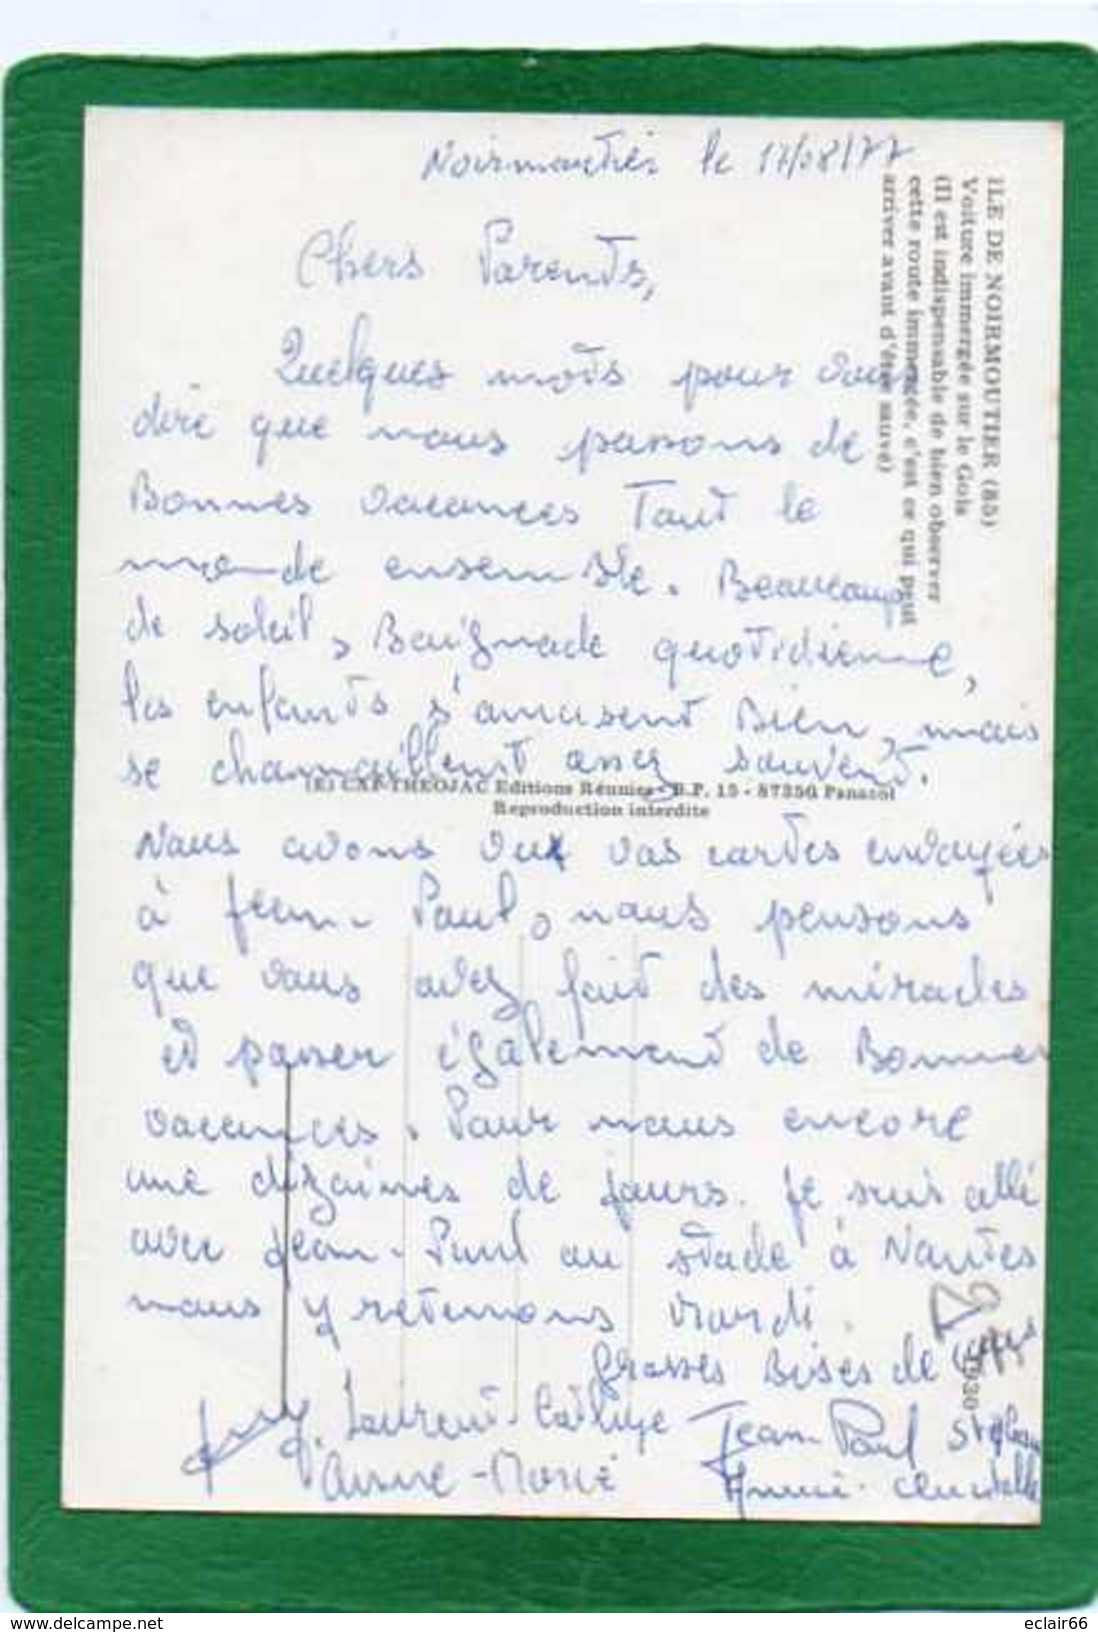 Noirmoutier le 17/08/77
Chers Parents,
Quelques mots pour vous
dire que nous passons de
Bonnes vacances Tout le
monde ensemble. Beaucoup
de soleil, Baignade quotidienne,
les enfants s'amusent Bien, mais
se chamaillent assez souvent.
Nous avons vu vos cartes envoyées
à Jean-Paul, nous pensons
que vous avez fait des miracles
et passer également de Bonnes
vacances. Pour nous encore
une dizaines de jours. Je suis allé
avec Jean-Paul au stade à Nantes
nous y retournons Mardi.
Grosses Bises de
Laurent
Anne-Marie
Jean Paul Stéphane
Annie
ILE DE NOIRMOUTIER (85)
Voiture immergée sur le Gois
(Il est indispensable de bien oberver
cette route immergée, c'est ce qui peut
arriver avant d'être sauvé)
(E) CAP-THEOJAC Editions Réunies - B.P. 15 - 87350 Panazol
Reproduction interdite
www.delcampe.net
eclair66